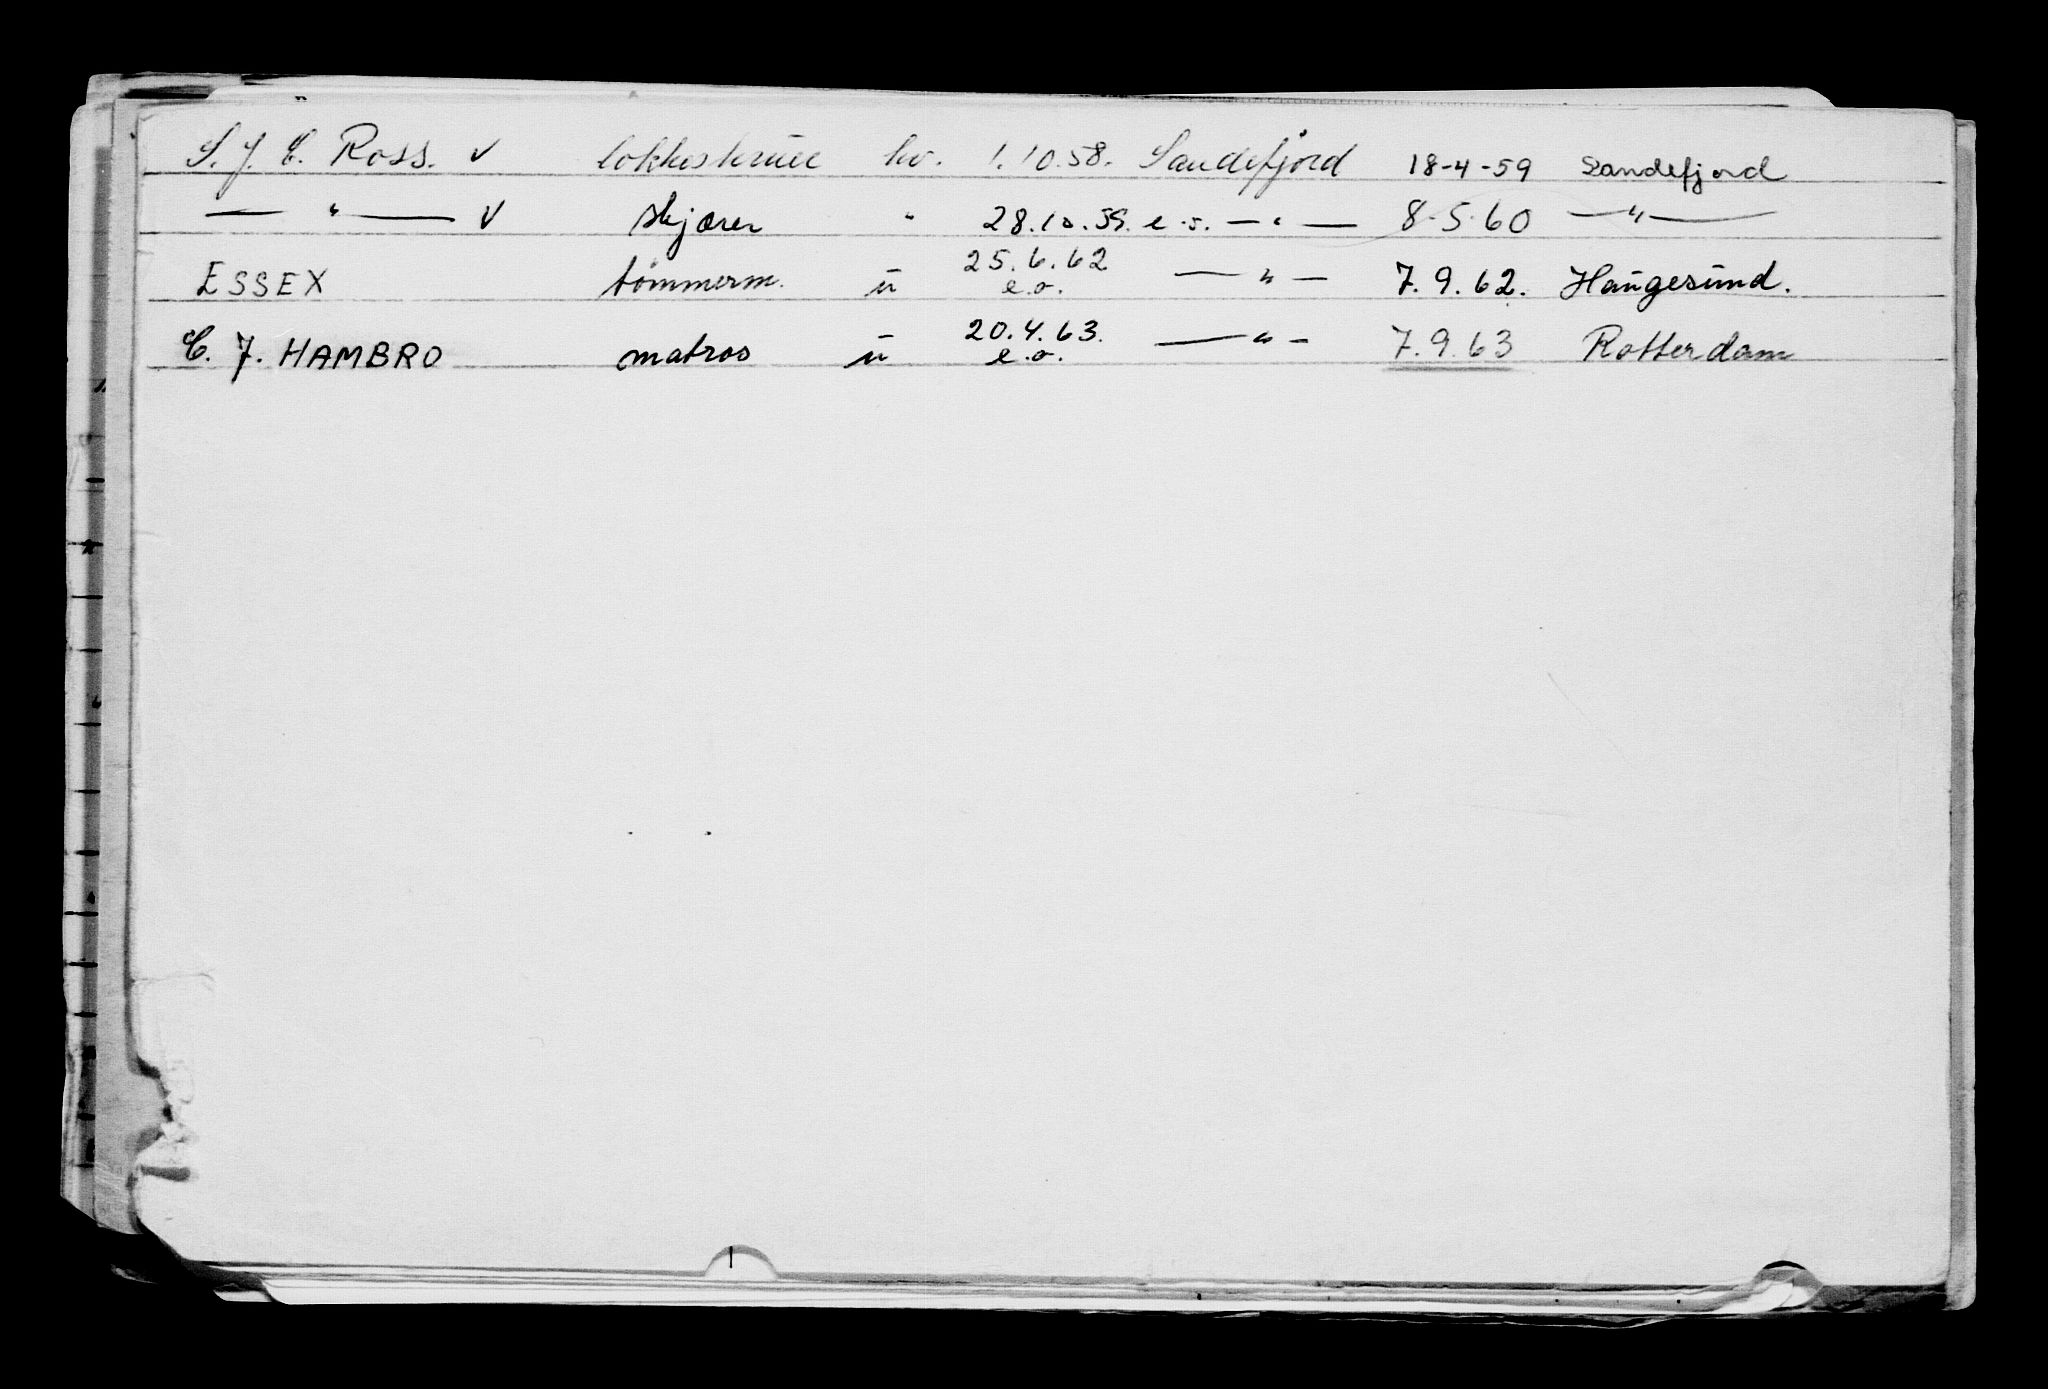 S. J. C. Ross. v hv. 1.10.58. Sandefjord 18-4-59 Sandefjord
— " — v skjærer " 28.10.59. e.s. — " — 8-5-60 — " —
ESSEX tømmerm. u 25.6.62 e.o. — " — 7.9.62. Haugesund.
C. J. HAMBRO matros u 20.4.63. e.o. — " — 7.9.63 Rotterdam